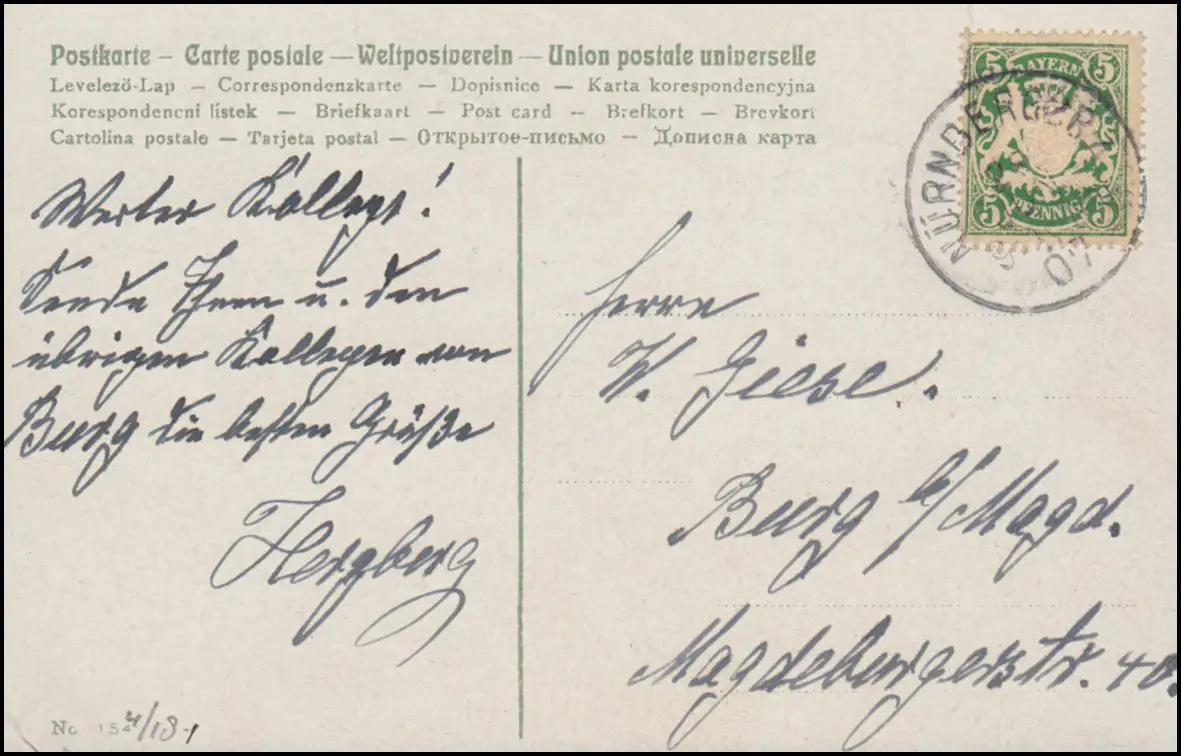 Postkarte – Carte postale – Weltpostverein – Union postale universelle
Levelező-Lap – Correspondenzkarte – Dopisnice – Karta korespondencyjna
Korespondencni listek – Briefkaart – Post card – Brefkort – Brevkort
Cartolina postale – Tarjeta postal – Открытое-письмо – Дописна карта
BAYERN
5 5
5 PFENNIG 5
NÜRNBERG
07
Werter Kollege!
Sende Ihnen u. den
übrigen Kollegen von
Burg die besten Grüße
Herzberg
Herrn
W. Giese.
Burg b/Magd.
Magdeburgerstr. 40.
No. 154